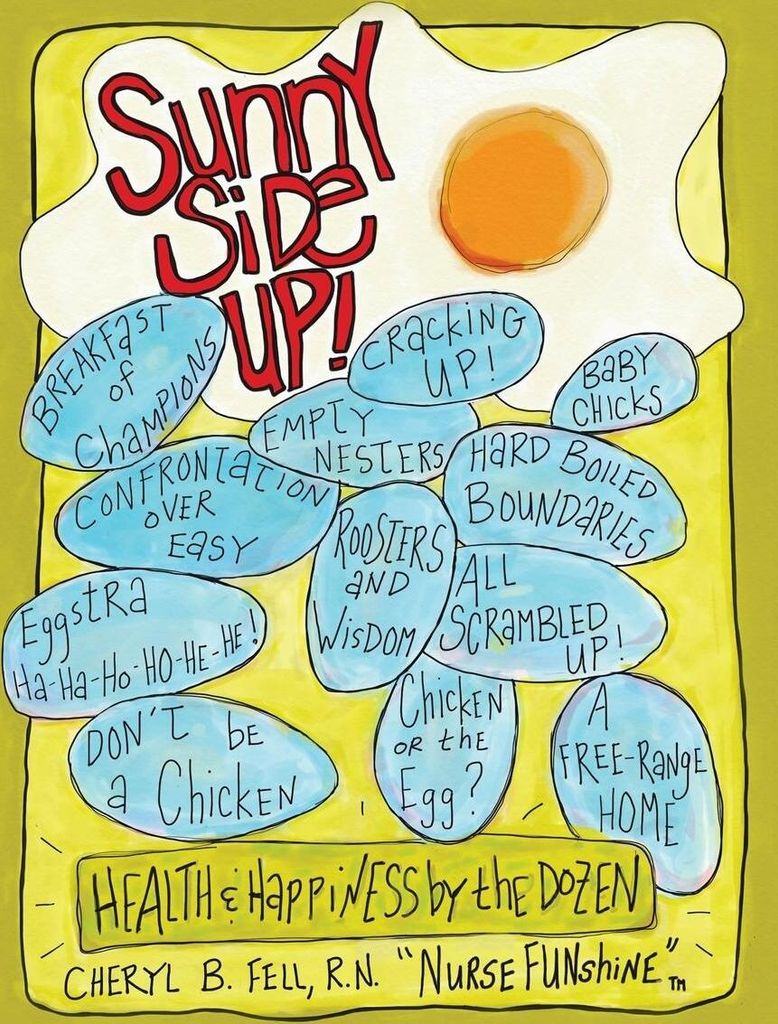 Sunny
Side
UP!
BREAKFAST
of
Champions
CRACKING
UP!
BABY
CHICKS
EMPTY
NESTERS
CONFRONTATION
OVER
EASY
HARD BOILED
BOUNDARIES
ROOSTERS
AND
WISDOM
ALL
SCRAMBLED
UP!
Eggstra
Ha-Ha-Ho-HO-HE-HE!
DON'T BE
a Chicken
Chicken
OR the
Egg?
A
FREE-RANGE
HOME
HEALTH & HAPPINESS by the DOZEN
CHERYL B. FELL, R.N. "NURSE FUNshiNE"™